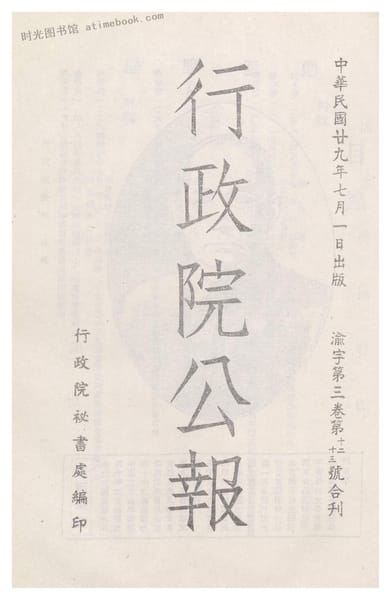 时光图书馆 atimebook.com
中華民國廿九年七月一日出版
渝字第三卷第十二十三號合刊
行政院公報
行政院祕書處編印